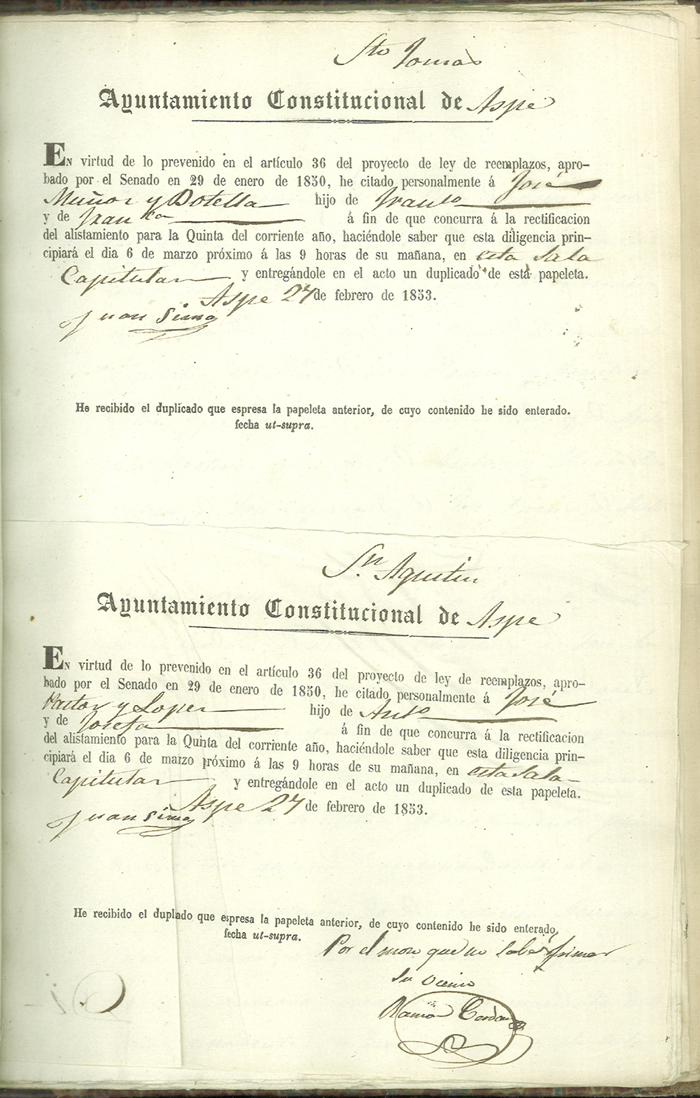 Sto Tomas
Ayuntamiento Constitucional de Aspe
En virtud de lo prevenido en el artículo 36 del proyecto de ley de reemplazos, apro-
bado por el Senado en 29 de enero de 1850, he citado personalmente á José
Muñoz y Botella hijo de Franco
y de Franca á fin de que concurra á la rectificacion
del alistamiento para la Quinta del corriente año, haciéndole saber que esta diligencia prin-
cipiará el dia 6 de marzo próximo á las 9 horas de su mañana, en esta Sala
Capitular y entregándole en el acto un duplicado de esta papeleta.
Aspe 27 de febrero de 1853.
Juan Simo
He recibido el duplicado que espresa la papeleta anterior, de cuyo contenido he sido enterado.
fecha ut-supra.
Sn Agustin
Ayuntamiento Constitucional de Aspe
En virtud de lo prevenido en el artículo 36 del proyecto de ley de reemplazos, apro-
bado por el Senado en 29 de enero de 1850, he citado personalmente á José
Pastor y Lopez hijo de Anto
y de Josefa á fin de que concurra á la rectificacion
del alistamiento para la Quinta del corriente año, haciéndole saber que esta diligencia prin-
cipiará el dia 6 de marzo próximo á las 9 horas de su mañana, en esta Sala
Capitular y entregándole en el acto un duplicado de esta papeleta.
Aspe 27 de febrero de 1853.
Juan Simo
He recibido el duplado que espresa la papeleta anterior, de cuyo contenido he sido enterado,
fecha ut-supra.
Por el mozo que no sabe firmar
su vecino
Ramon